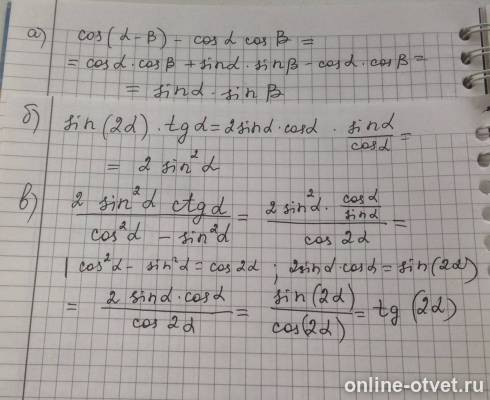 а) cos(α-β) - cosα cosβ =
= cosα·cosβ + sinα·sinβ - cosα·cosβ =
= sinα·sinβ
б) sin(2α)·tgα = 2sinα·cosα · sinα/cosα =
= 2 sin²α
в) 2 sin²α ctgα / cos²α - sin²α = 2 sin²α · cosα/sinα / cos 2α =
| cos²α - sin²α = cos2α ; 2sinα·cosα = sin(2α)
= 2 sinα·cosα / cos 2α = sin(2α) / cos(2α) = tg(2α)
online-otvet.ru